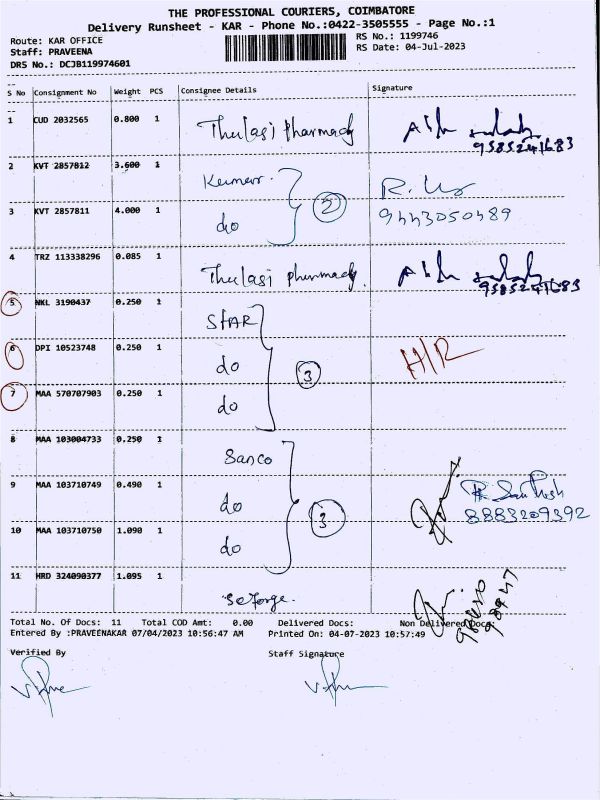 THE PROFESSIONAL COURIERS, COIMBATORE
Delivery Runsheet - KAR - Phone No.:0422-3505555 - Page No.:1
Route: KAR OFFICE
Staff: PRAVEENA
DRS No.: DCJB119974601
RS No.: 1199746
RS Date: 04-Jul-2023
S No Consignment No Weight PCS Consignee Details Signature
1 CUD 2032565 0.800 1 Thulasi pharmacy
9585241683
2 KVT 2857812 3.600 1 Kumar. R.
3 KVT 2857811 4.000 1 do 2 9443050489
4 TRZ 113338296 0.085 1 Thulasi pharmacy.
9585241683
5 NKL 3190437 0.250 1 STAR
6 DPI 10523748 0.250 1 do 3 H/R
7 MAA 570707903 0.250 1 do
8 MAA 103004733 0.250 1 Sanco
9 MAA 103710749 0.490 1 do 3 Santhosh
8883209392
10 MAA 103710750 1.090 1 do
11 HRD 324090377 1.095 1
Total No. Of Docs: 11 Total COD Amt: 0.00 Delivered Docs: Non Delivered Docs:
Entered By :PRAVEENAKAR 07/04/2023 10:56:47 AM Printed On: 04-07-2023 10:57:49
Verified By Staff Signature